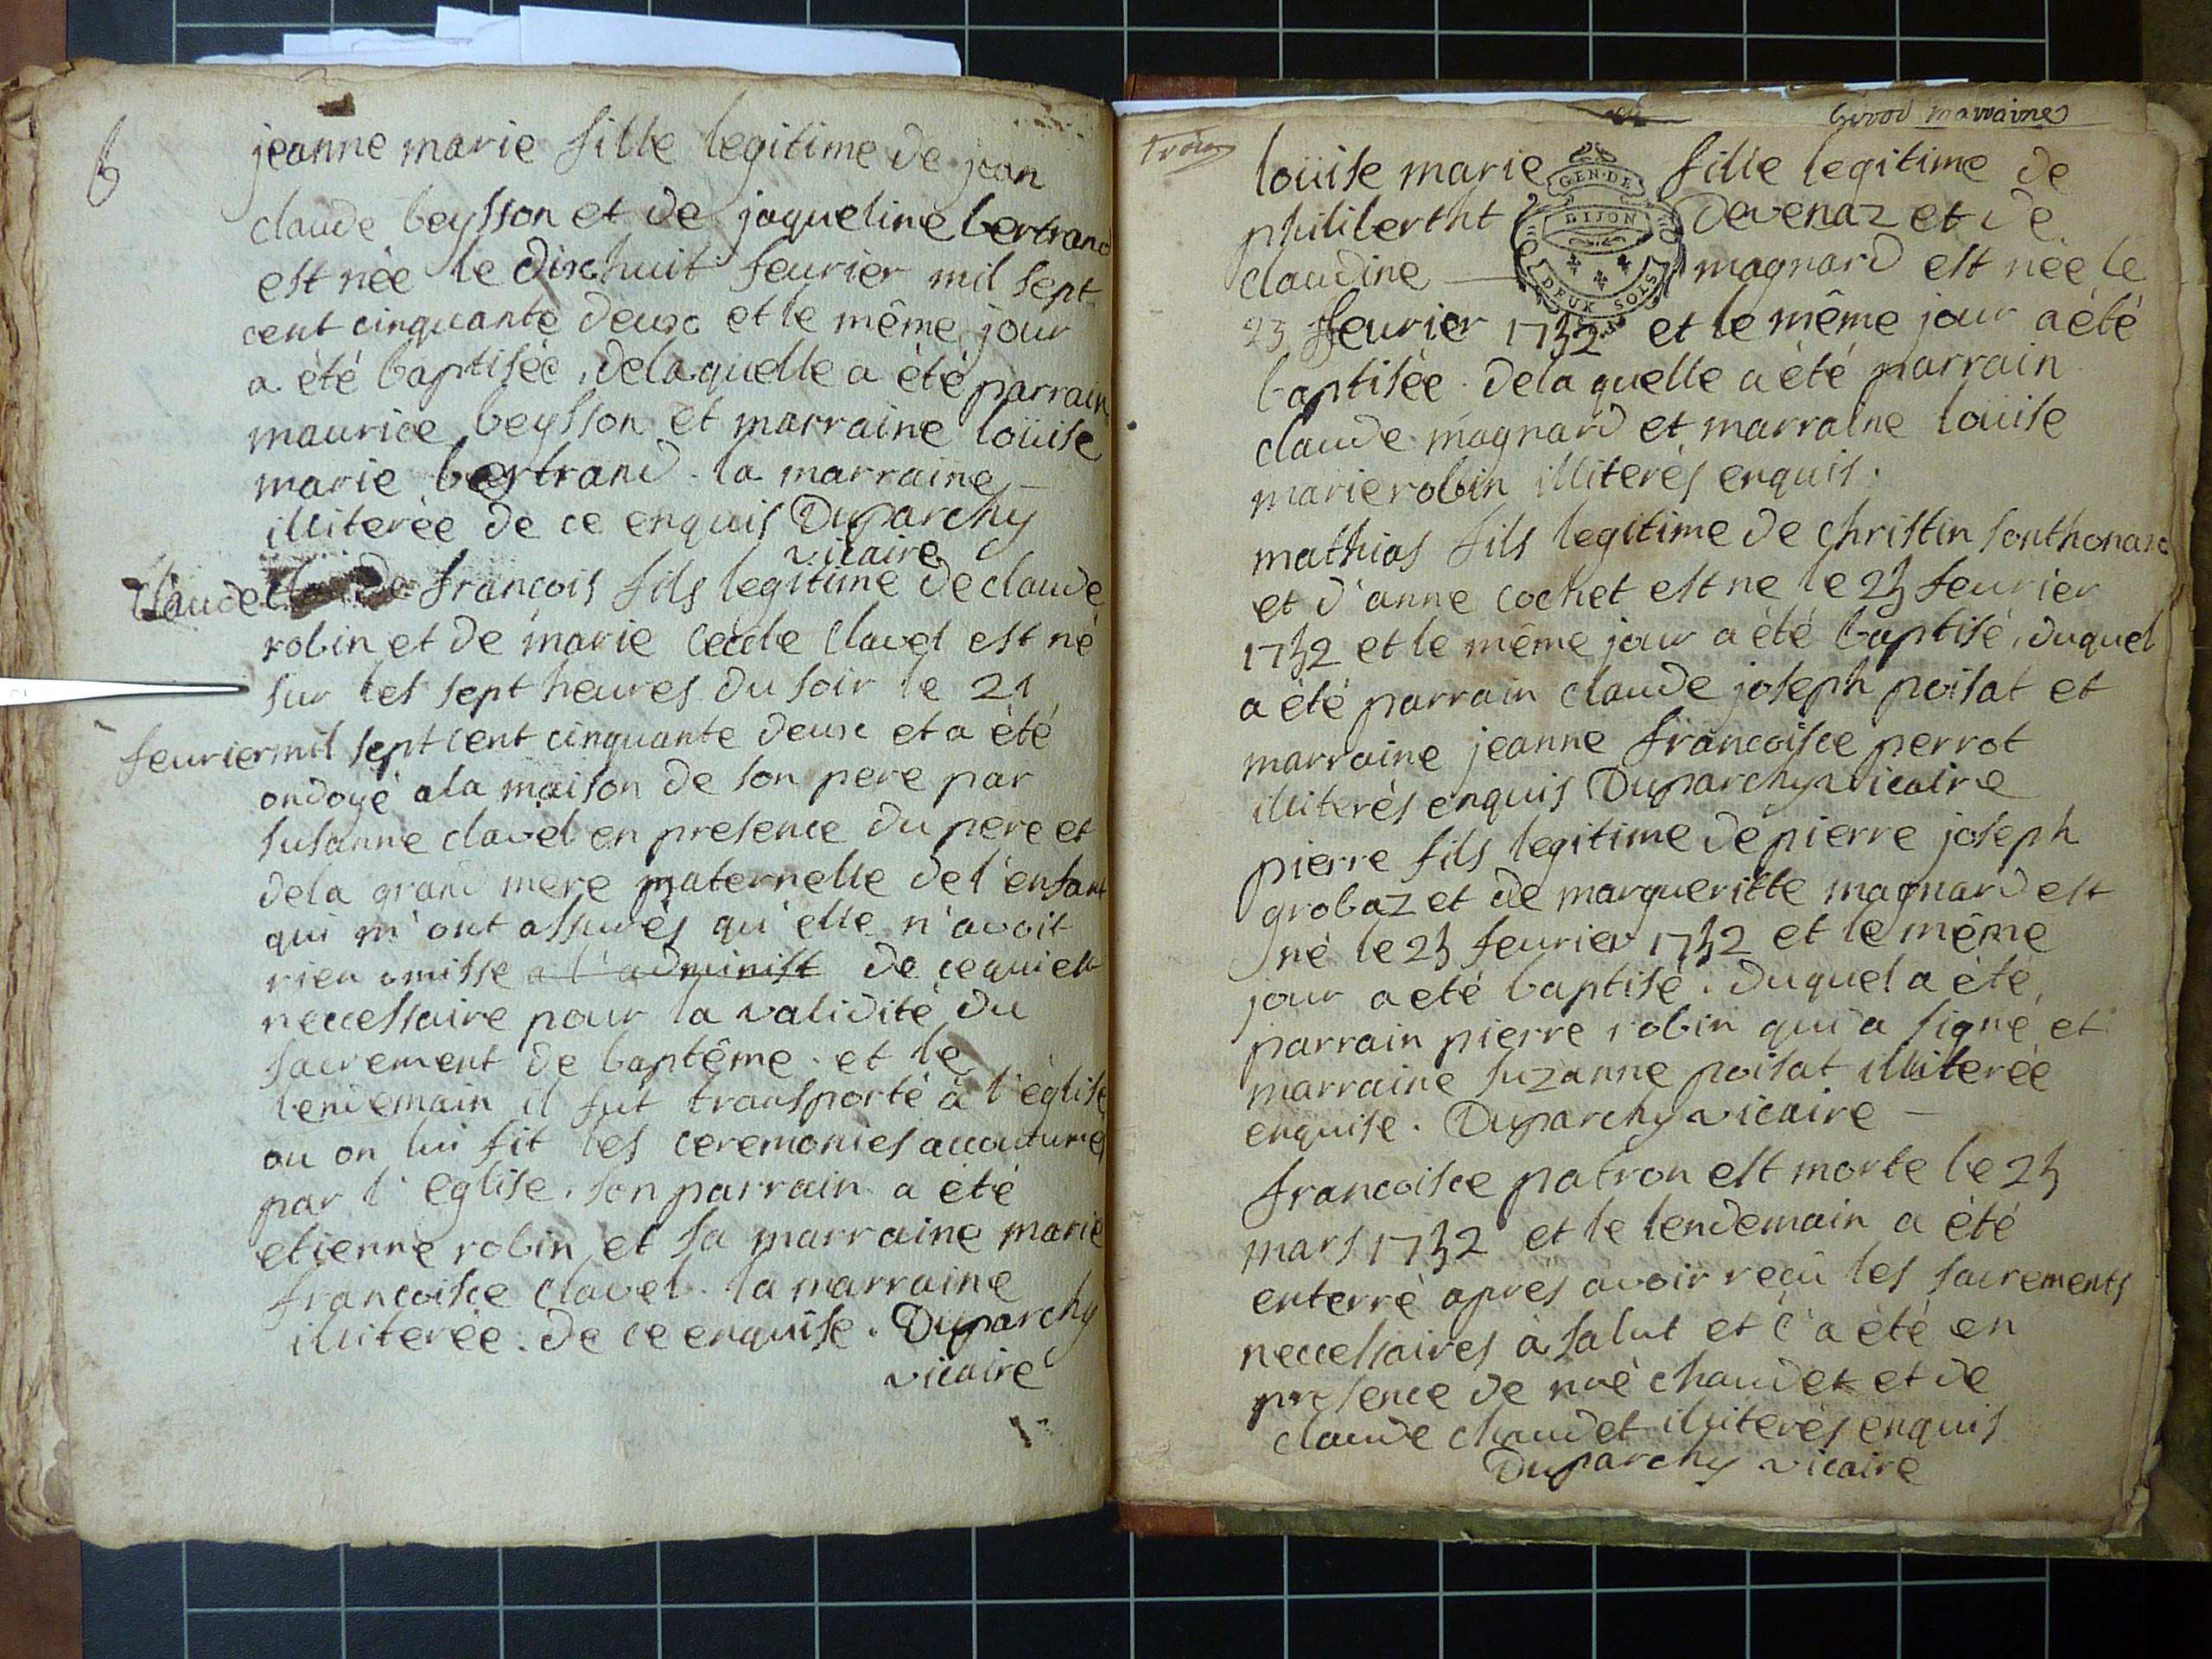 6
jeanne marie fille legitime de jean
claude beysson et de jaqueline bertrand
est nèe le dixhuit feurier mil sept
cent cinquante deux et le même jour
a èté baptisée, delaquelle a èté parrain
maurice beysson et marraine loüise
marie bertrand. la marraine
illiterèe de ce enquis Duparchy
vicaire
Claude françois fils legitime de claude
robin et de marie cecile clavel est né
sur les sept heures du soir le 21
feurier mil sept cent cinquante deux et a été
ondoyé a la maison de son pere par
susanne clavel en presence du pere et
de la grand mere maternelle de l'enfant
qui m'ont assurés qu'elle n'avoit
rien omisse a l'administ de ce qui est
neccessaire pour la validité du
sacrement de baptême. et le
lendemain il fut transporté à l'èglise
ou on lui fit les ceremonies accoutumes
par l'eglise. son parrain a été
etienne robin et sa marraine marie
francoisce clavel. la marraine
illiterèe. de ce enquise. Duparchy
vicaire
trois
loüise marie fille legitime de
philibertht devenaz et de
claudine magnard est nèe le
GEN·DE
DIJON
DEUX SOLS
23 feurier 1752 et le même jour a èté
baptisèe. dela quelle a èté parrain
claude magnard et marraine loüise
marie robin illiterès enquis.
mathias fils legitime de christin sonthonax
et d'anne cochet est ne le 23 feurier
1752 et le même jour a été baptisé, duquel
a été parrain claude joseph poisat et
marraine jeanne francoisce perrot
illiterès enquis Duparchy vicaire
pierre fils legitime de pierre joseph
grobaz et de margueritte magnard est
né le 23 feurier 1752 et le même
jour a eté baptisé. duquel a èté
parrain pierre robin qui a signé et
marraine suzanne poisat illiterèe
enquise. Duparchy vicaire
francoisce patron est morte le 25
mars 1752 et le lendemain a été
enterré apres avoir reçu les sacrements
neccessaires à salut et c'a èté en
presence de noè chaudet et de
claude chaudet illiterès enquis
Duparchy vicaire